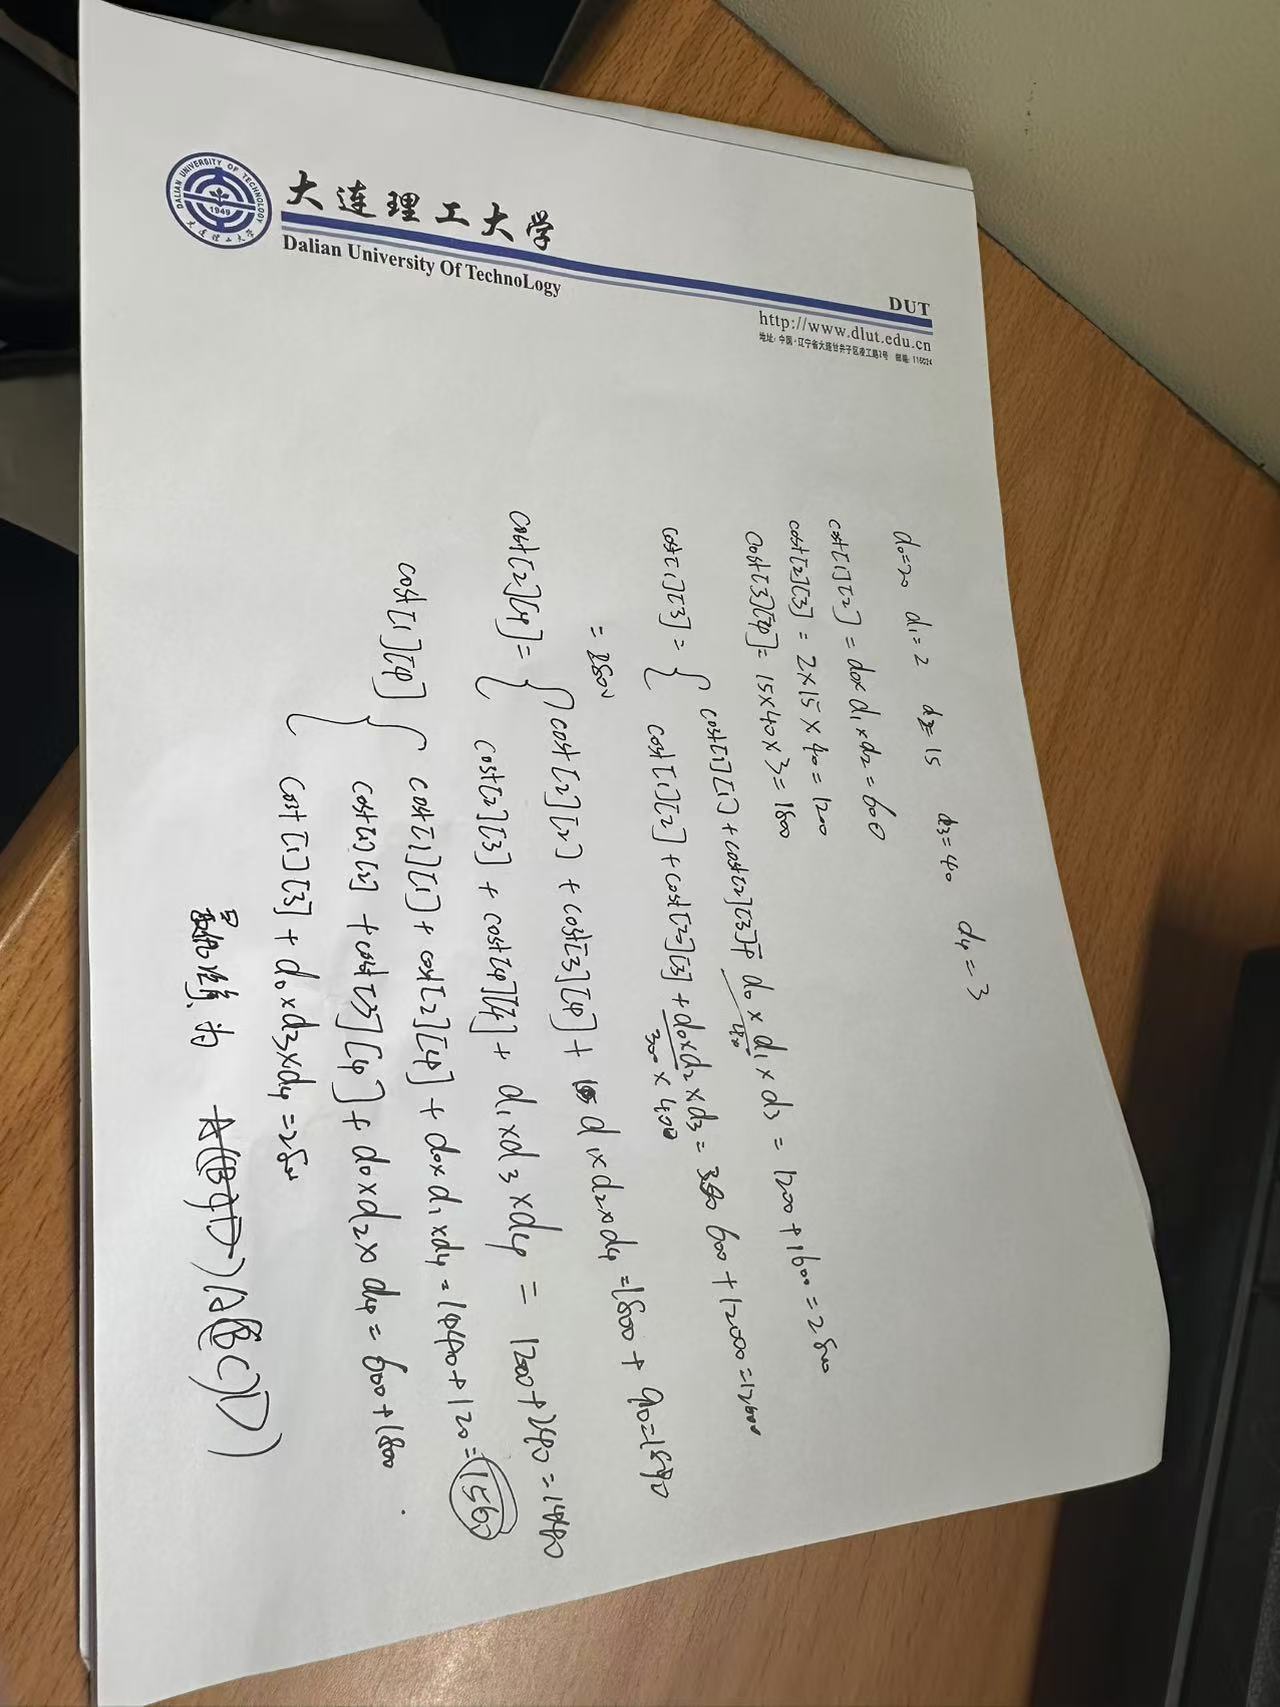 大连理工大学
Dalian University Of TechnoLogy
DALIAN UNIVERSITY OF TECHNOLOGY
1949
大连理工大学
DUT
http://www.dlut.edu.cn
地址: 中国·辽宁省大连甘井子区凌工路2号 邮编: 116024
d₀=20 d₁=2 d₂=15 d₃=40 d₄=3
cost[1][2] = d₀×d₁×d₂=600
cost[2][3] = 2×15×40=1200
cost[3][4] = 15×40×3=1800
cost[1][3] = { cost[1][1]+cost[2][3]+ d₀×d₁×d₃ = 1200+1600=2800
40
{ cost[1][2]+cost[3][3]+d₀×d₂×d₃= 600+12000=12600
300 × 400
= 2800
cost[2][4]= { cost[2][2]+cost[3][4]+ d₁×d₂×d₄=1800+90=1890
{ cost[2][3]+cost[4][4]+d₁×d₃×d₄ = 1200+240=1440
cost[1][4] { cost[1][1]+cost[2][4]+d₀×d₁×d₄=1440+120=1560
cost[1][2]+cost[3][4]+d₀×d₂×d₄=600+1800
{ cost[1][3]+d₀×d₃×d₄=2800
为 A(BCD) (A(BC)D)